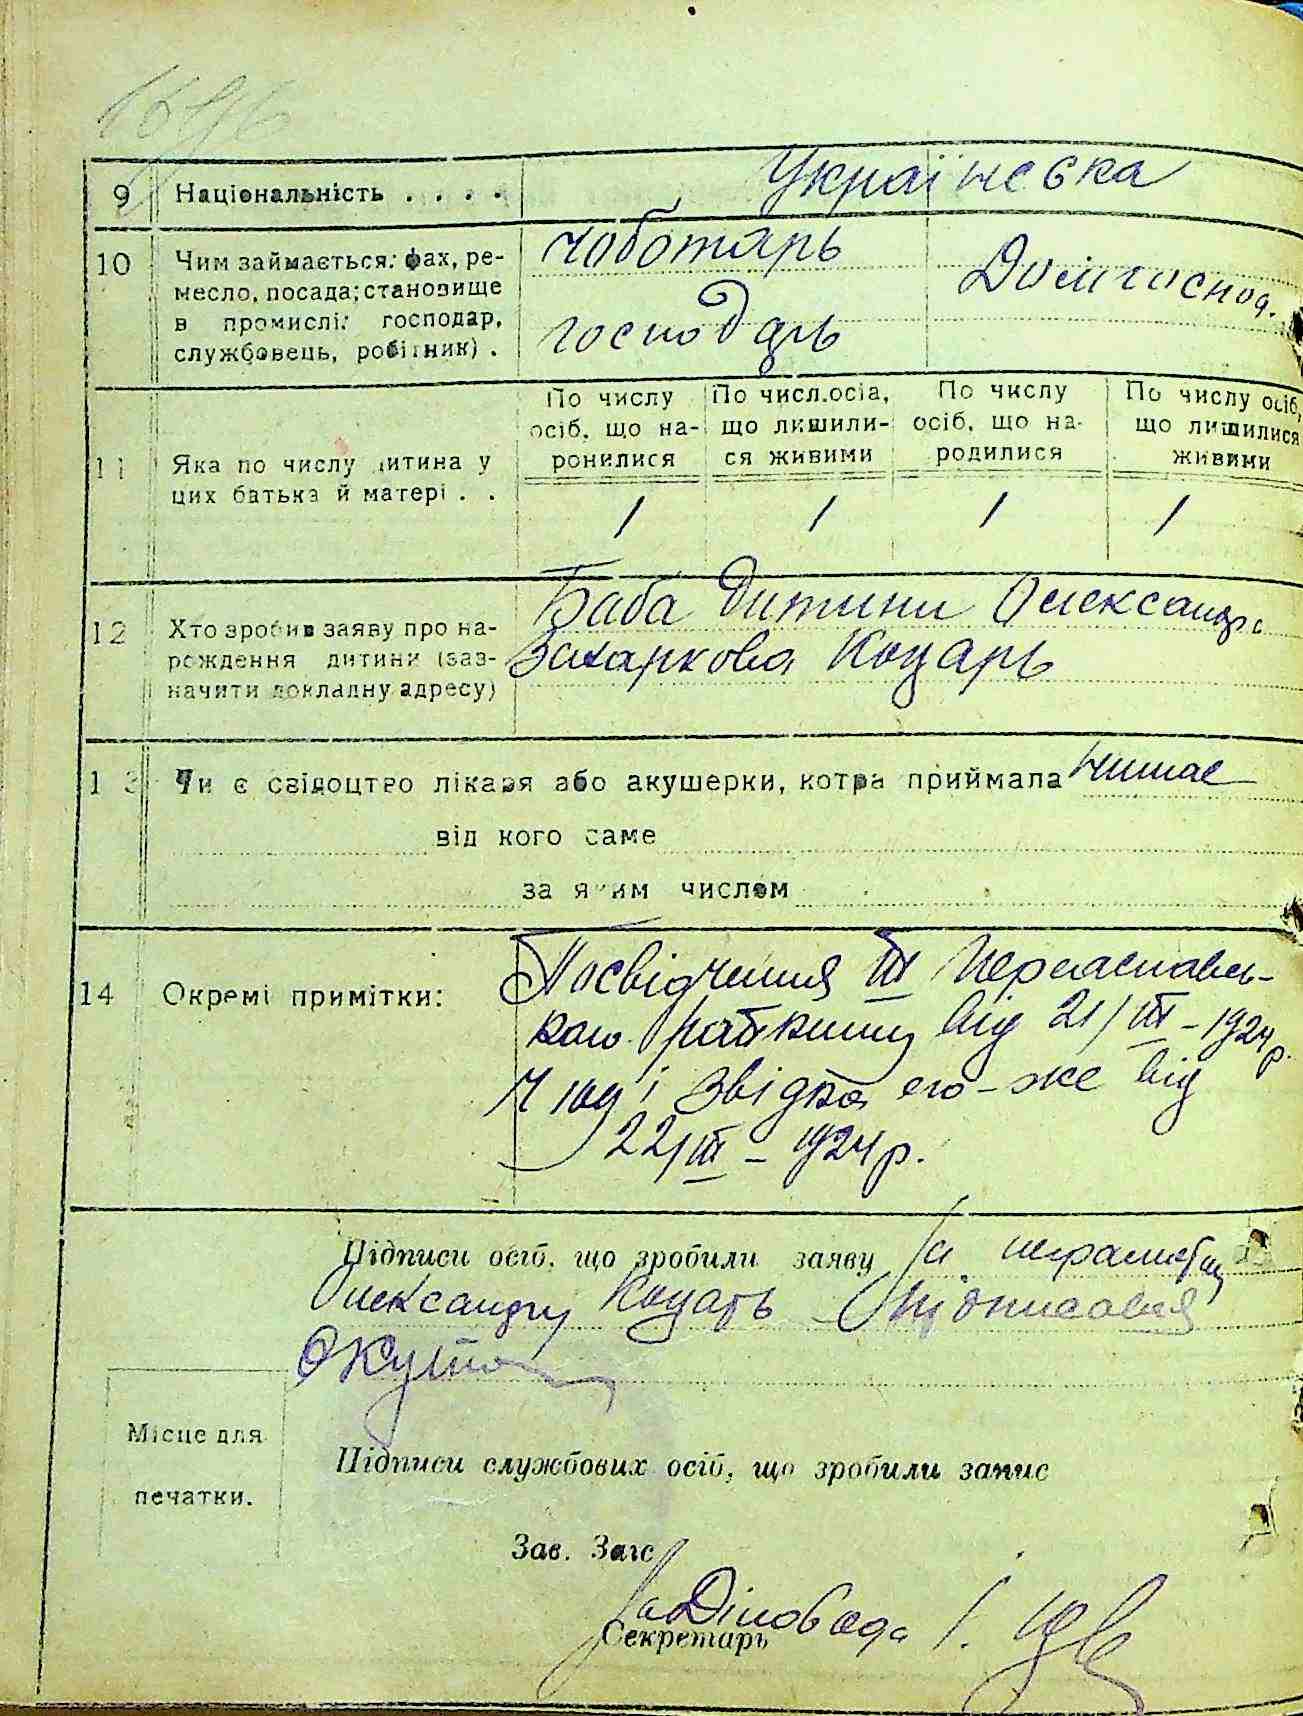 9 Національність . . . . Українська
10 Чим займається: фах, ре-
месло, посада; становище
в промислі: господар,
службовець, робітник) .
Чоботарь
господарь
Домгоспод.
11 Яка по числу дитина у
цих батька й матері . .
По числу
осіб, що на-
ронилися
По числ.осіа,
що лишили-
ся живими
По числу
осіб, що на-
родилися
По числу осіб,
що лишилися
живими
1 1 1 1
12 Хто зробив заяву про на-
рождення дитини (заз-
начити докладну адресу)
Баба дитини Олександра
Захаркова Коцарь
13 Чи є свідоцтво лікаря або акушерки, котра приймала Немає
від кого саме
за яким числом
14 Окремі примітки:
Посвідчення III Переаславсь-
кого від 21/III – 1924 р.
Ч і звідка его-же від
22/III – 1924 р.
Підписи осіб, що зробили заяву За
Олександру Коцарь підписався
Місце для
печатки.
Підписи службових осіб, що зробили запис
Зав. Загс
За Діловода І.
Секретарь